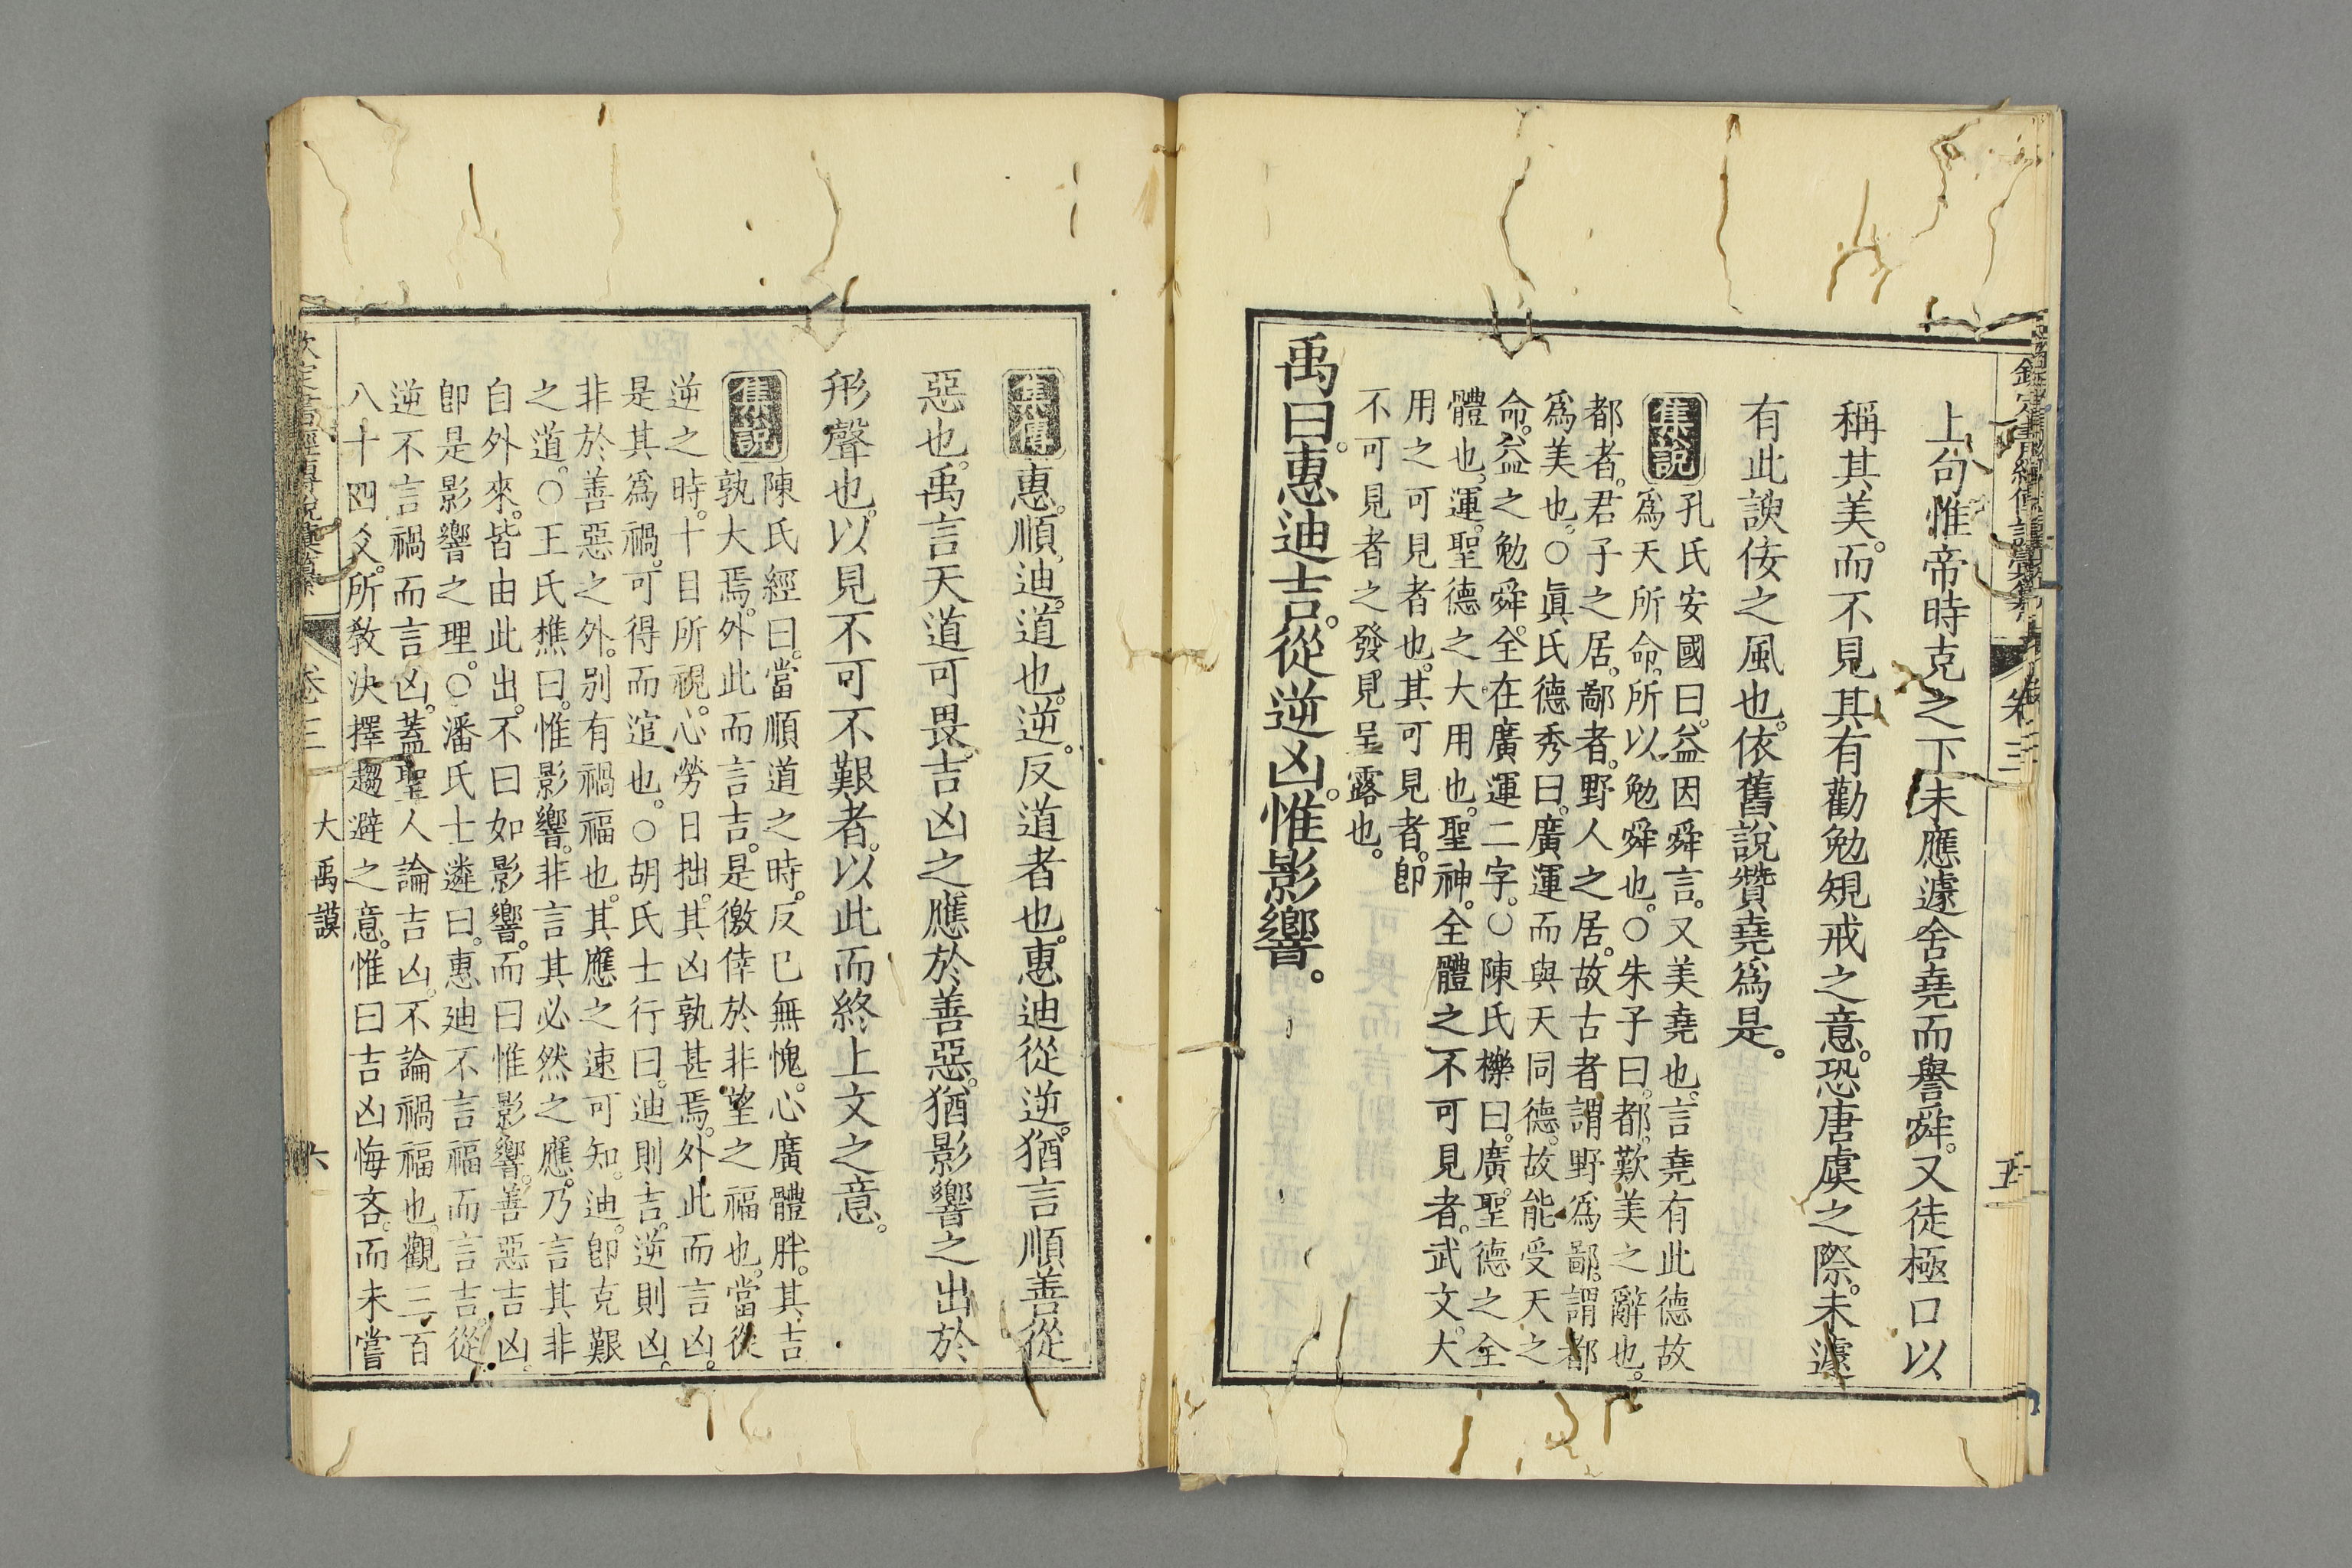 上句惟帝時克之下未應遽舍堯而譽舜。又徒極口以
稱其美。而不見其有勸勉規戒之意。恐唐虞之際。未遽
有此諛佞之風也。依舊說贊堯爲是。
集說
孔氏安國曰。益因舜言。又美堯也。言堯有此德故
爲天所命。所以勉舜也。○朱子曰。都。歎美之辭也。
都者。君子之居。鄙者。野人之居。故古者謂野爲鄙。謂都
爲美也。○眞氏德秀曰。廣運而與天同德。故能受天之
命。益之勉舜。全在廣運二字。○陳氏櫟曰。廣。聖德之全
體也。運。聖德之大用也。聖神。全體之不可見者。武文。大
用之可見者也。其可見者。卽
不可見者之發見呈露也。
禹曰。惠迪吉。從逆凶。惟影響。
卷三
五
集傳
惠。順。迪。道也。逆。反道者也。惠迪從逆。猶言順善從
惡也。禹言天道可畏。吉凶之應於善惡。猶影響之出於
形聲也。以見不可不艱者。以此而終上文之意。
集說
陳氏經曰。當順道之時。反已無愧。心廣體胖。其吉
孰大焉。外此而言吉。是徼倖於非望之福也。當從
逆之時。十目所視。心勞日拙。其凶孰甚焉。外此而言凶。
是其爲禍。可得而逭也。○胡氏士行曰。迪則吉。逆則凶。
非於善惡之外。别有禍福也。其應之速可知。迪。卽克艱
之道。○王氏樵曰。惟影響。非言其必然之應。乃言其非
自外來。皆由此出。不曰如影響。而曰惟影響。善惡吉凶。
卽是影響之理。○潘氏士遴曰。惠廸不言福而言吉。從
逆不言禍而言凶。蓋聖人論吉凶。不論禍福也。觀三百
八十四爻。所敎決擇趨避之意。惟曰吉凶悔吝。而未嘗
欽定書經傳說彙纂
卷三
大禹謨
六